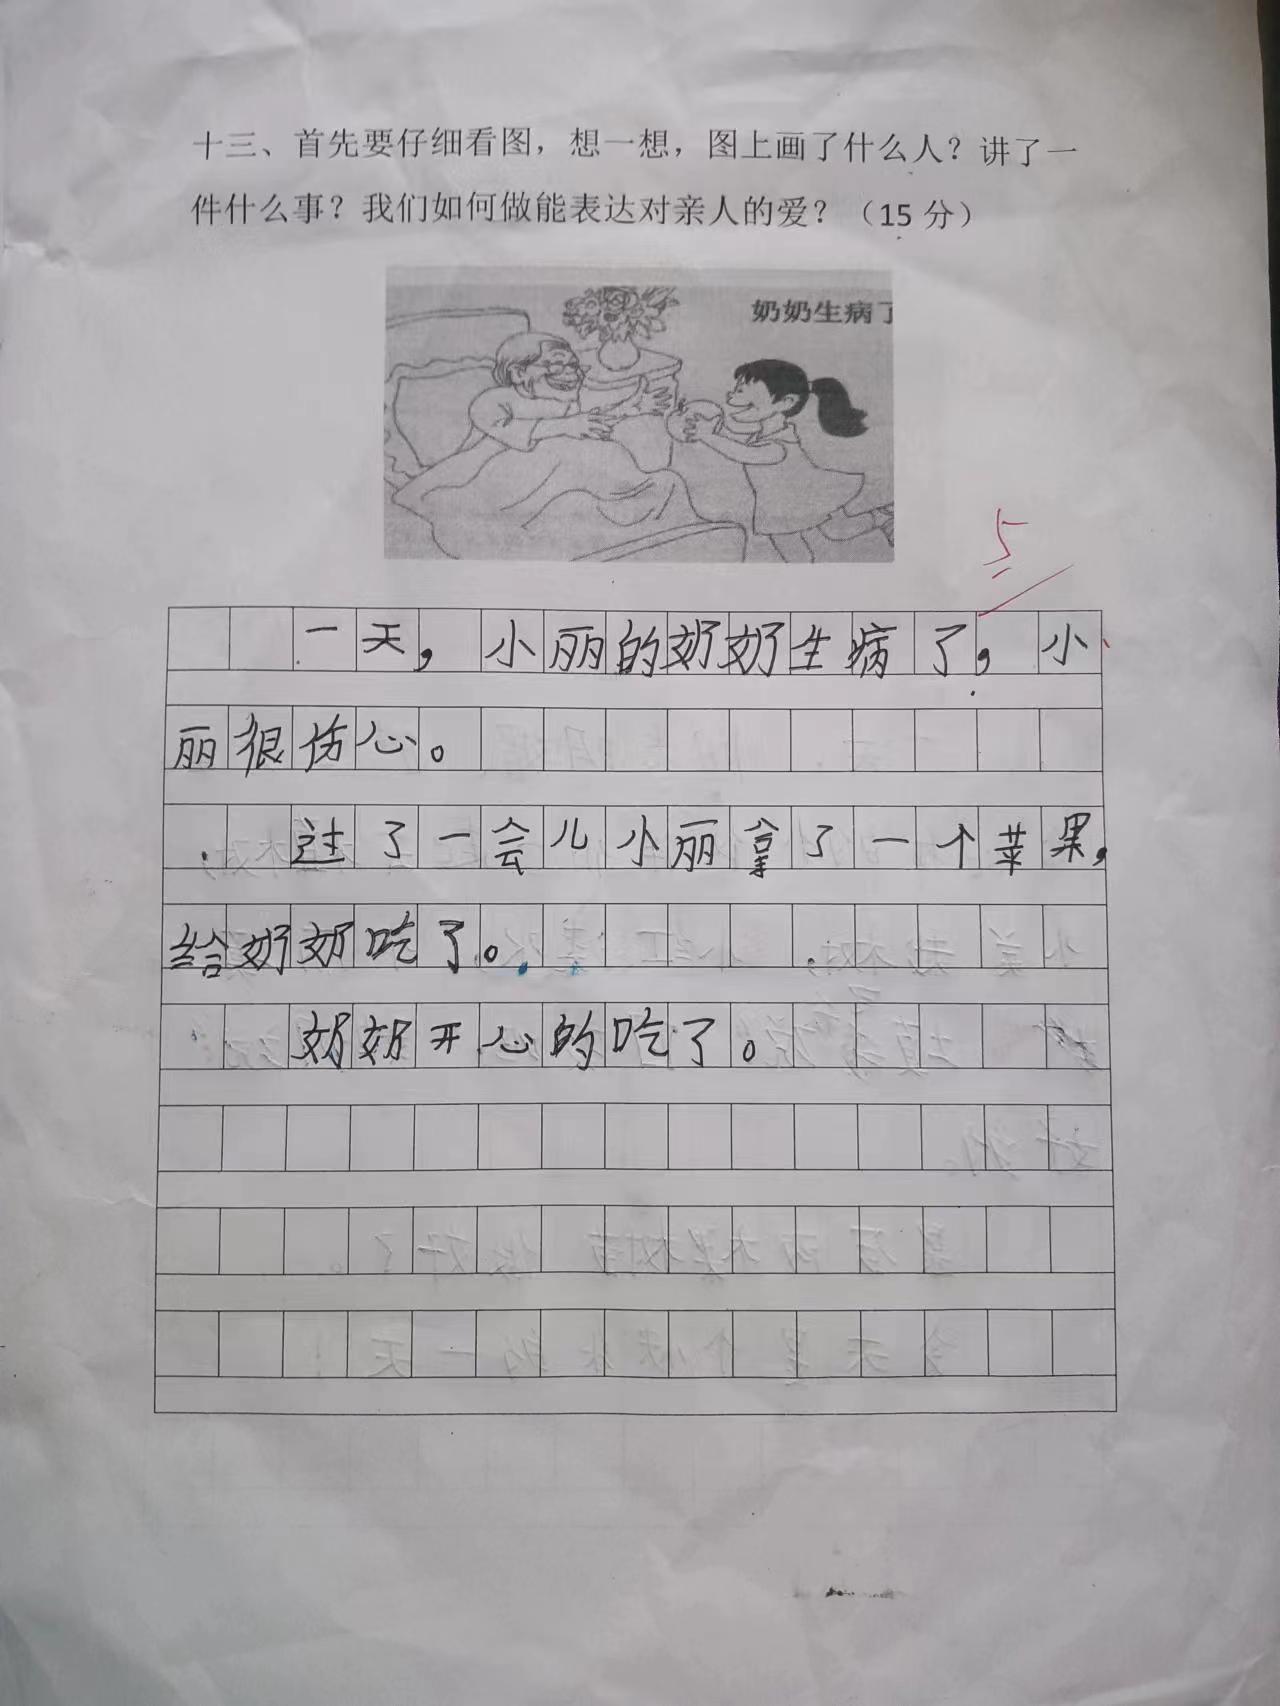 十三、首先要仔细看图，想一想，图上画了什么人？讲了一
件什么事？我们如何做能表达对亲人的爱？（15 分）
奶奶生病了
5
一天，小丽的奶奶生病了，小
丽很伤心。
过了一会儿小丽拿了一个苹果，
给奶奶吃了。
奶奶开心的吃了。